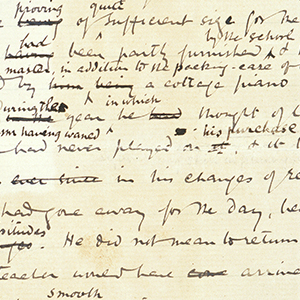 proving quite
of sufficient size for the
had by the school
been partly furnished & d
master, in addition to the packing-case of
d by a cottage piano
during the in which
year he thought of l
sm having waned his purchase
had never played on & it
ever since in his changes of re
had gone away for the day, be
situdes
. He did not mean to return
teacher would have arrive
smooth